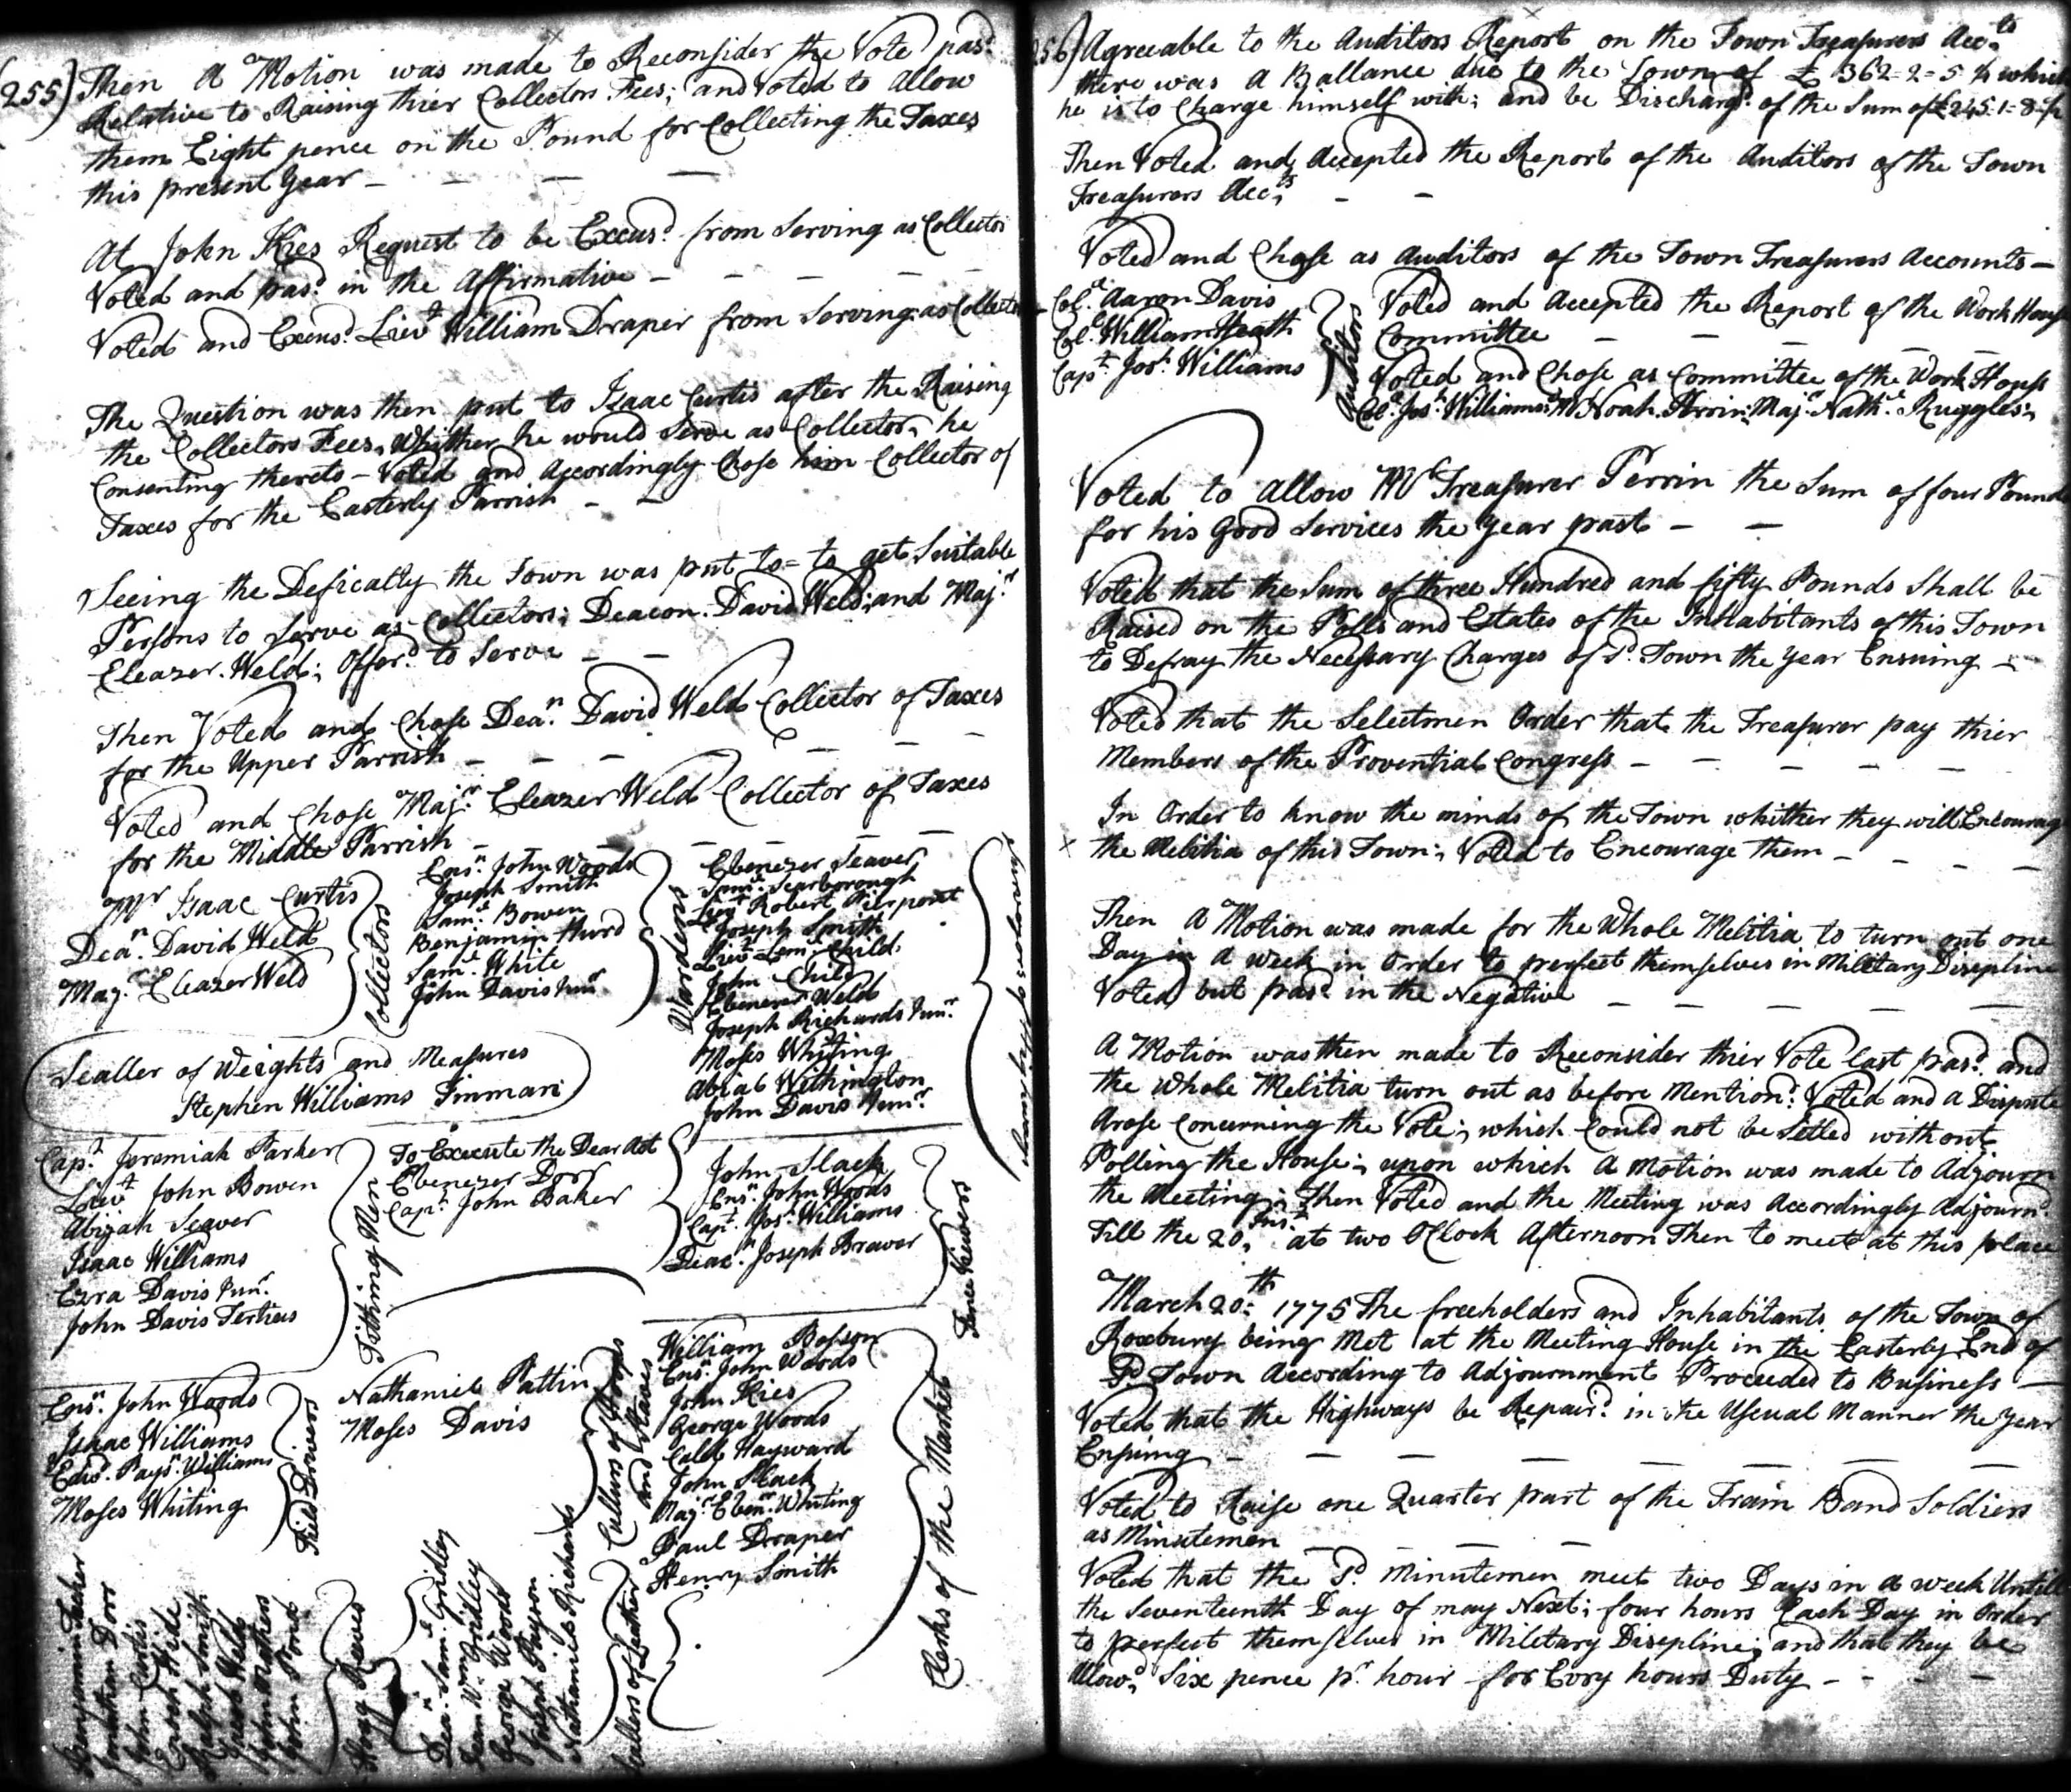 (255) Then A Motion was made to Reconsider the Vote pasd
Relative to Raising thier Collectors Fees; and Voted to Allow
them Eight pence on the Pound for Collecting the Taxes
this present Year —
At John Kies Request to be Excusd. from Serving as Collector
Voted and pasd. in the Affirmative —
Voted and Excusd. Lievt William Draper from Serving as Collector
The Question was then put to Isaac Curtis after the Raising
the Collectors Fees, Whither he would Serve as Collector, he
Consenting thereto — Voted and Accordingly Chose him Collector of
Taxes for the Easterly Parrish —
Seeing the Defically the Town was put to = to get Suitable
Persons to Serve as Collectors; Deacon. David Weld; and Majr.
Eleazer. Weld; Offerd. to Serve —
Then Voted and Chose Dean. David Weld Collector of Taxes
for the Upper Parrish —
Voted and Chose Majr. Eleazer Weld Collector of Taxes
for the Middle Parrish —
Mr Isaac Curtis
Dean. David Weld
Majr. Eleazer Weld
Collectors
Ensn. John Woods
Joseph Smith
Saml. Bowen
Benjamin Hurd
Saml. White
John Davis Junr.
Wardens
Ebenezer Seaver
Saml. Scarborough
Lievt Robert Pierpont
Joseph Smith
Lievt Leml. Child
John Child
Ebenezer Weld
Joseph Richards Junr.
Moses Whiting
Abiab Withington
John Davis Junr.
Surveyors of Highways
Sealler of Weights and Measures
Stephen Williams Tinman
Capt. Jeremiah Parker
Lievt John Bowen
Abijah Seaver
Isaac Williams
Ezra Davis Junr.
John Davis Tertius
Tithing Men
To Execute the Dear Act
Ebenezer Dorr
Capt. John Baker
John Slack
Ensn. John Woods
Capt. Josh. Williams
Deacn. Joseph Brewer
Fence Viewers
Ensn. John Woods
Isaac Williams
Edwd. Paysn. Williams
Moses Whiting
Field Drivers
Nathaniel Pattin
Moses Davis
Cullers of Hoops
and Staves
William Bosson
Ensn. John Woods
John Kies
George Woods
Caleb Hayward
John Slack
Majr. Ebenr. Whiting
Paul Draper
Henry Smith
Clerks of the Market
Benjamin
Jonathan Dorr
John Curtis
Hide
Ralph Smith
Weld
John Mathers
John Pond
Hog Reeves
Dean. Saml. Gridley
Wm. Gridley
George Woods
Joseph Payson
Nathaniel Richards
Sealers of Leather
256) Agreeable to the Auditors Report on the Town Treasurers Accts.
there was A Ballance due to the Town of £ 362=2=5 ½ which
he is to Charge himself with; and be Dischargd. of the Sum of £245.1=8
Then Voted and Accepted the Report of the Auditors of the Town
Treasurers Accts. —
Voted and Chose as Auditors of the Town Treasurers Accounts —
Coll. Aaron Davis
Coll. William Heath
Capt. Josh. Williams
Auditors
Voted and Accepted the Report of the Work House
Committee —
Voted and Chose as Committee of the Work House
Coll. Josh. Williams; Mr Noah Perrin; Majr. Nathl. Ruggles;
Voted to allow Mr Treasurer Perrin the Sum of four Pound
for his Good Services the Year past —
Voted that the Sum of three Hundred and fifty Pounds Shall be
Raised on the Polls and Estates of the Inhabitants of this Town
to Defray the Necessary Charges of Sd. Town the Year Ensuing —
Voted that the Selectmen Order that the Treasurer pay thier
Members of the Provential Congress —
In Order to know the minds of the Town whither they will Encourage
the Melitia of this Town; Voted to Encourage them —
Then A Motion was made for the Whole Melitia to turn out one
Day in A week in Order to perfect themselves in Military Disepline
Voted but pasd. in the Negative —
A Motion was then made to Reconsider thier Vote last pasd. and
the Whole Melitia turn out as before Mentiond. Voted and a Dispute
Arose Concerning the Vote; which Could not be Setled without
Polling the House; upon which A Motion was made to Adjourn
the Meeting; Then Voted and the Meeting was Accordingly Adjournd.
Till the 20, Inst. at two OClock Afternoon Then to meet at this place
March 20th: 1775 The freeholders and Inhabitants of the Town of
Roxbury being Met at the Meeting House in the Easterly End of
Sd. Town According to Adjournment Proceeded to Business —
Voted that the Highways be Repaird. in the Useual Manner the Year
Ensuing —
Voted to Raise one Quarter part of the Train Band Soldiers
as Minutemen —
Voted that the Sd. Minutemen meet two Days in A week Untill
the Seventeenth Day of may Next; four hours Each Day in Order
to perfect themselves in Military Disepline; and that they be
Allowd. Six pence pr. hour for Evry hours Duty —